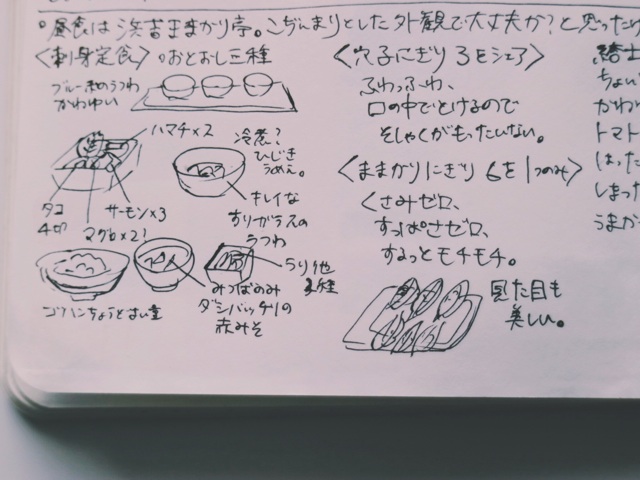 昼食は浜吉ままかり亭。こぢんまりとした外観で大丈夫か?と思ったけ
〈刺身定食〉 ・おとおし三種
ブルー系のうつわ
かわゆい
ハマチ×2
タコ
4切
サーモン×3
マグロ×2!
冷煮?
ひじき
うめえ。
キレイな
すりガラスの
うつわ
ゴハンちょうどよい量
みつばのみ
ダシバッチリの
赤みそ
うり他
2種
〈穴子にぎり 3をシェア〉
ふわっふわ、
口の中でとけるので
そしゃくがもったいない。
〈ままかりにぎり 6を1つのみ〉
くさみゼロ、
すっぱさゼロ、
するっとモチモチ。
見た目も
美しい。
ちょい
かわい
トマト
はった
しまった
うまか